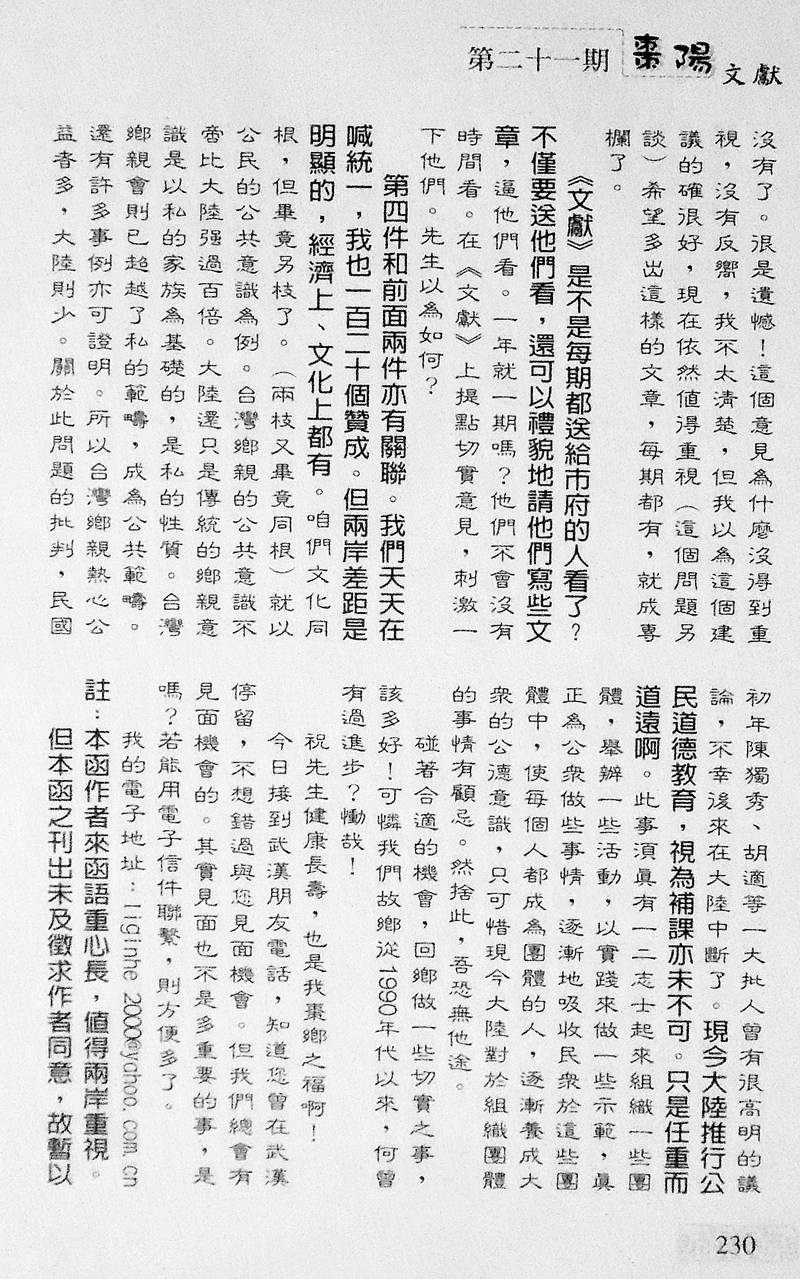 第二十一期 棗陽文獻
沒有了。很是遺憾！這個意見為什麼沒得到重
視，沒有反響，我不太清楚，但我以為這個建
議的確很好，現在依然值得重視（這個問題另
談）希望多出這樣的文章，每期都有，就成專
欄了。
《文獻》是不是每期都送給市府的人看了？
不僅要送他們看，還可以禮貌地請他們寫些文
章，逼他們看。一年就一期嗎？他們不會沒有
時間看。在《文獻》上提點切實意見，刺激一
下他們。先生以為如何？
第四件和前面兩件亦有關聯。我們天天在
喊統一，我也一百二十個贊成。但兩岸差距是
明顯的，經濟上、文化上都有。咱們文化同
根，但畢竟另枝了。（兩枝又畢竟同根）就以
公民的公共意識為例。台灣鄉親的公共意識不
啻比大陸强過百倍。大陸還只是傳統的鄉親意
識是以私的家族為基礎的，是私的性質。台灣
鄉親會則已超越了私的範疇，成為公共範疇。
還有許多事例亦可證明。所以台灣鄉親熱心公
益者多，大陸則少。關於此問題的批判，民國
初年陳獨秀、胡適等一大批人曾有很高明的議
論，不幸後來在大陸中斷了。現今大陸推行公
民道德教育，視為補課亦未不可。只是任重而
道遠啊。此事須真有一二志士起來組織一些團
體，舉辦一些活動，以實踐來做一些示範，真
正為公衆做些事情，逐漸地吸收民衆於這些團
體中，使每個人都成為團體的人，逐漸養成大
衆的公德意識，只可惜現今大陸對於組織團體
的事情有顧忌。然捨此，吾恐無他途。
碰著合適的機會，回鄉做一些切實之事，
該多好！可憐我們故鄉從1990年代以來，何曾
有過進步？慟哉！
祝先生健康長壽，也是我棗鄉之福啊！
今日接到武漢朋友電話，知道您曾在武漢
停留，不想錯過與您見面機會。但我們總會有
見面機會的。其實見面也不是多重要的事，是
嗎？若能用電子信件聯繫，則方便多了。
我的電子地址：liginhe 2000@yahoo.com.cn
註：本函作者來函語重心長，值得兩岸重視。
但本函之刊出未及徵求作者同意，故暫以
230